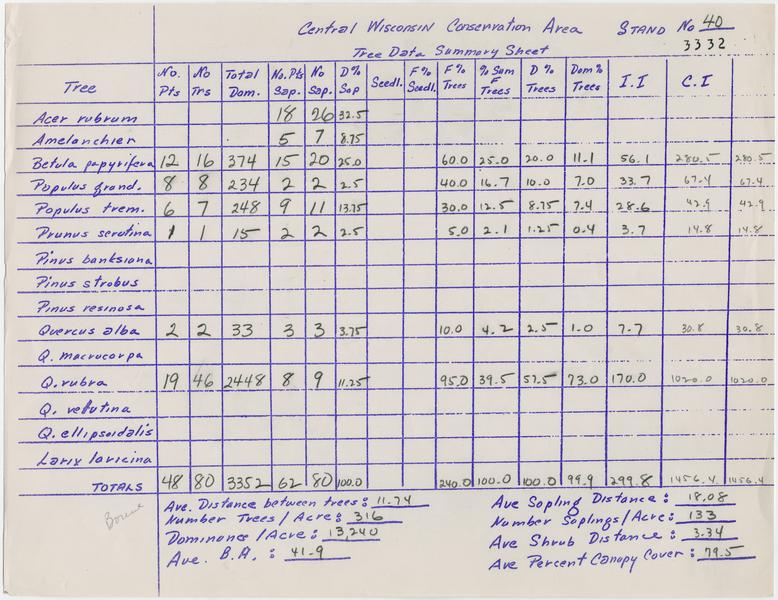 Central Wisconsin Conservation Area STAND No 40
Tree Data Summary Sheet 3332
Tree | No. Pts | No Trs | Total Dom. | No. Pts Sap. | No Sap. | D% Sap | Seedl. | F% Seedl. | F% Trees | % Sum F Trees | D% Trees | Dom% Trees | I.I | C.I
Acer rubrum 18 26 32.5
Amelanchier 5 7 8.75
Betula papyrifera 12 16 374 15 20 25.0 60.0 25.0 20.0 11.1 56.1 280.5 280.5
Populus grand. 8 8 234 2 2 2.5 40.0 16.7 10.0 7.0 33.7 67.4 67.4
Populus trem. 6 7 248 9 11 13.75 30.0 12.5 8.75 7.4 28.6 42.9 42.9
Prunus serotina 1 1 15 2 2 2.5 5.0 2.1 1.25 0.4 3.7 14.8 14.8
Pinus banksiana
Pinus strobus
Pinus resinosa
Quercus alba 2 2 33 3 3 3.75 10.0 4.2 2.5 1.0 7.7 30.8 30.8
Q. macrocarpa
Q. rubra 19 46 2448 8 9 11.25 95.0 39.5 57.5 73.0 170.0 1020.0 1020.0
Q. velutina
Q. ellipsoidalis
Larix laricina
TOTALS 48 80 3352 62 80 100.0 240.0 100.0 100.0 99.9 299.8 1456.4 1456.4
Ave. Distance between trees: 11.74
Number Trees/Acre: 316
Dominance/Acre: 13,240
Ave. B.A.: 41.9
Ave Sapling Distance: 18.08
Number Saplings/Acre: 133
Ave Shrub Distance: 3.34
Ave Percent Canopy Cover: 79.5